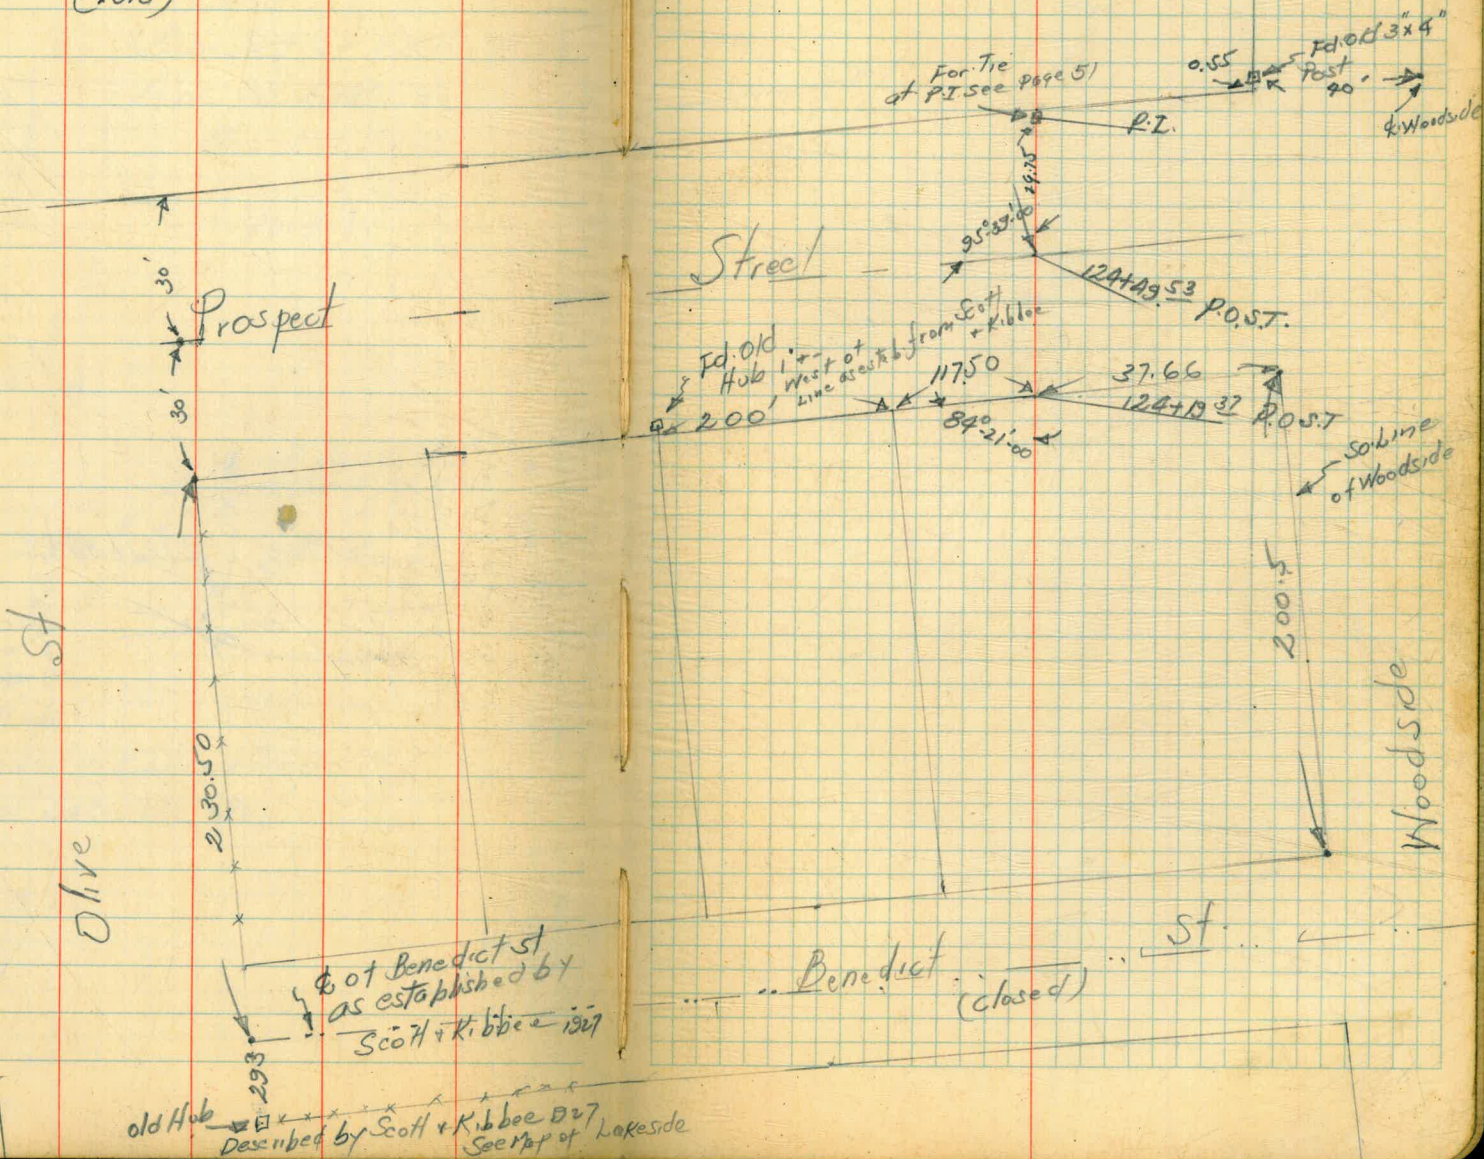 For Tie
at P.I. See page 51
0.55
Fd. Old 3"x4"
Post
40'
℄ Woodside
P.I.
29.75
30'
Prospect
Street
95°-39'-00
124+49 53 P.O.S.T.
30'
Fd. Old
Hub 1'+-
West of
Line as estab from Scott
+ Kibbee
200'
117.50
37.66
84°-21'-00
124+19 37 P.O.S.T
So. Line
of Woodside
200.5
St.
Olive
230.50
Woodside
℄ of Benedict St
as established by
Scott + Kibbee 1927
Benedict St.
(closed)
293
old Hub
Described by Scott + Kibbee 1927
See Map of Lakeside